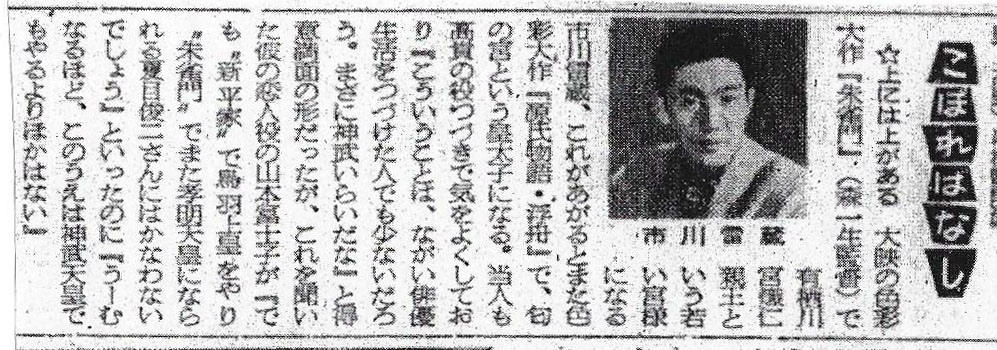 こぼれはなし
☆上には上がある 大映の色彩
大作『朱雀門』（森一生監督）で
有栖川
宮熾仁
親王と
いう若
い宮様
になる
市川雷蔵
市川雷蔵、これがあがるとまた色
彩大作『源氏物語・浮舟』で、匂
の宮という皇太子になる。当人も
高貴の役つづきで気をよくしてお
り『こういうことは、ながい俳優
生活をつづけた人でも少ないだろ
う。まさに神武いらいだな』と得
意満面の形だったが、これを聞い
た彼の恋人役の山本富士子が『で
も〝新平家〟で鳥羽上皇をやり
〝朱雀門〟でまた孝明天皇になら
れる夏目俊二さんにはかなわない
でしょう』といったのに『うーむ
なるほど、このうえは神武天皇で
もやるよりほかはない』